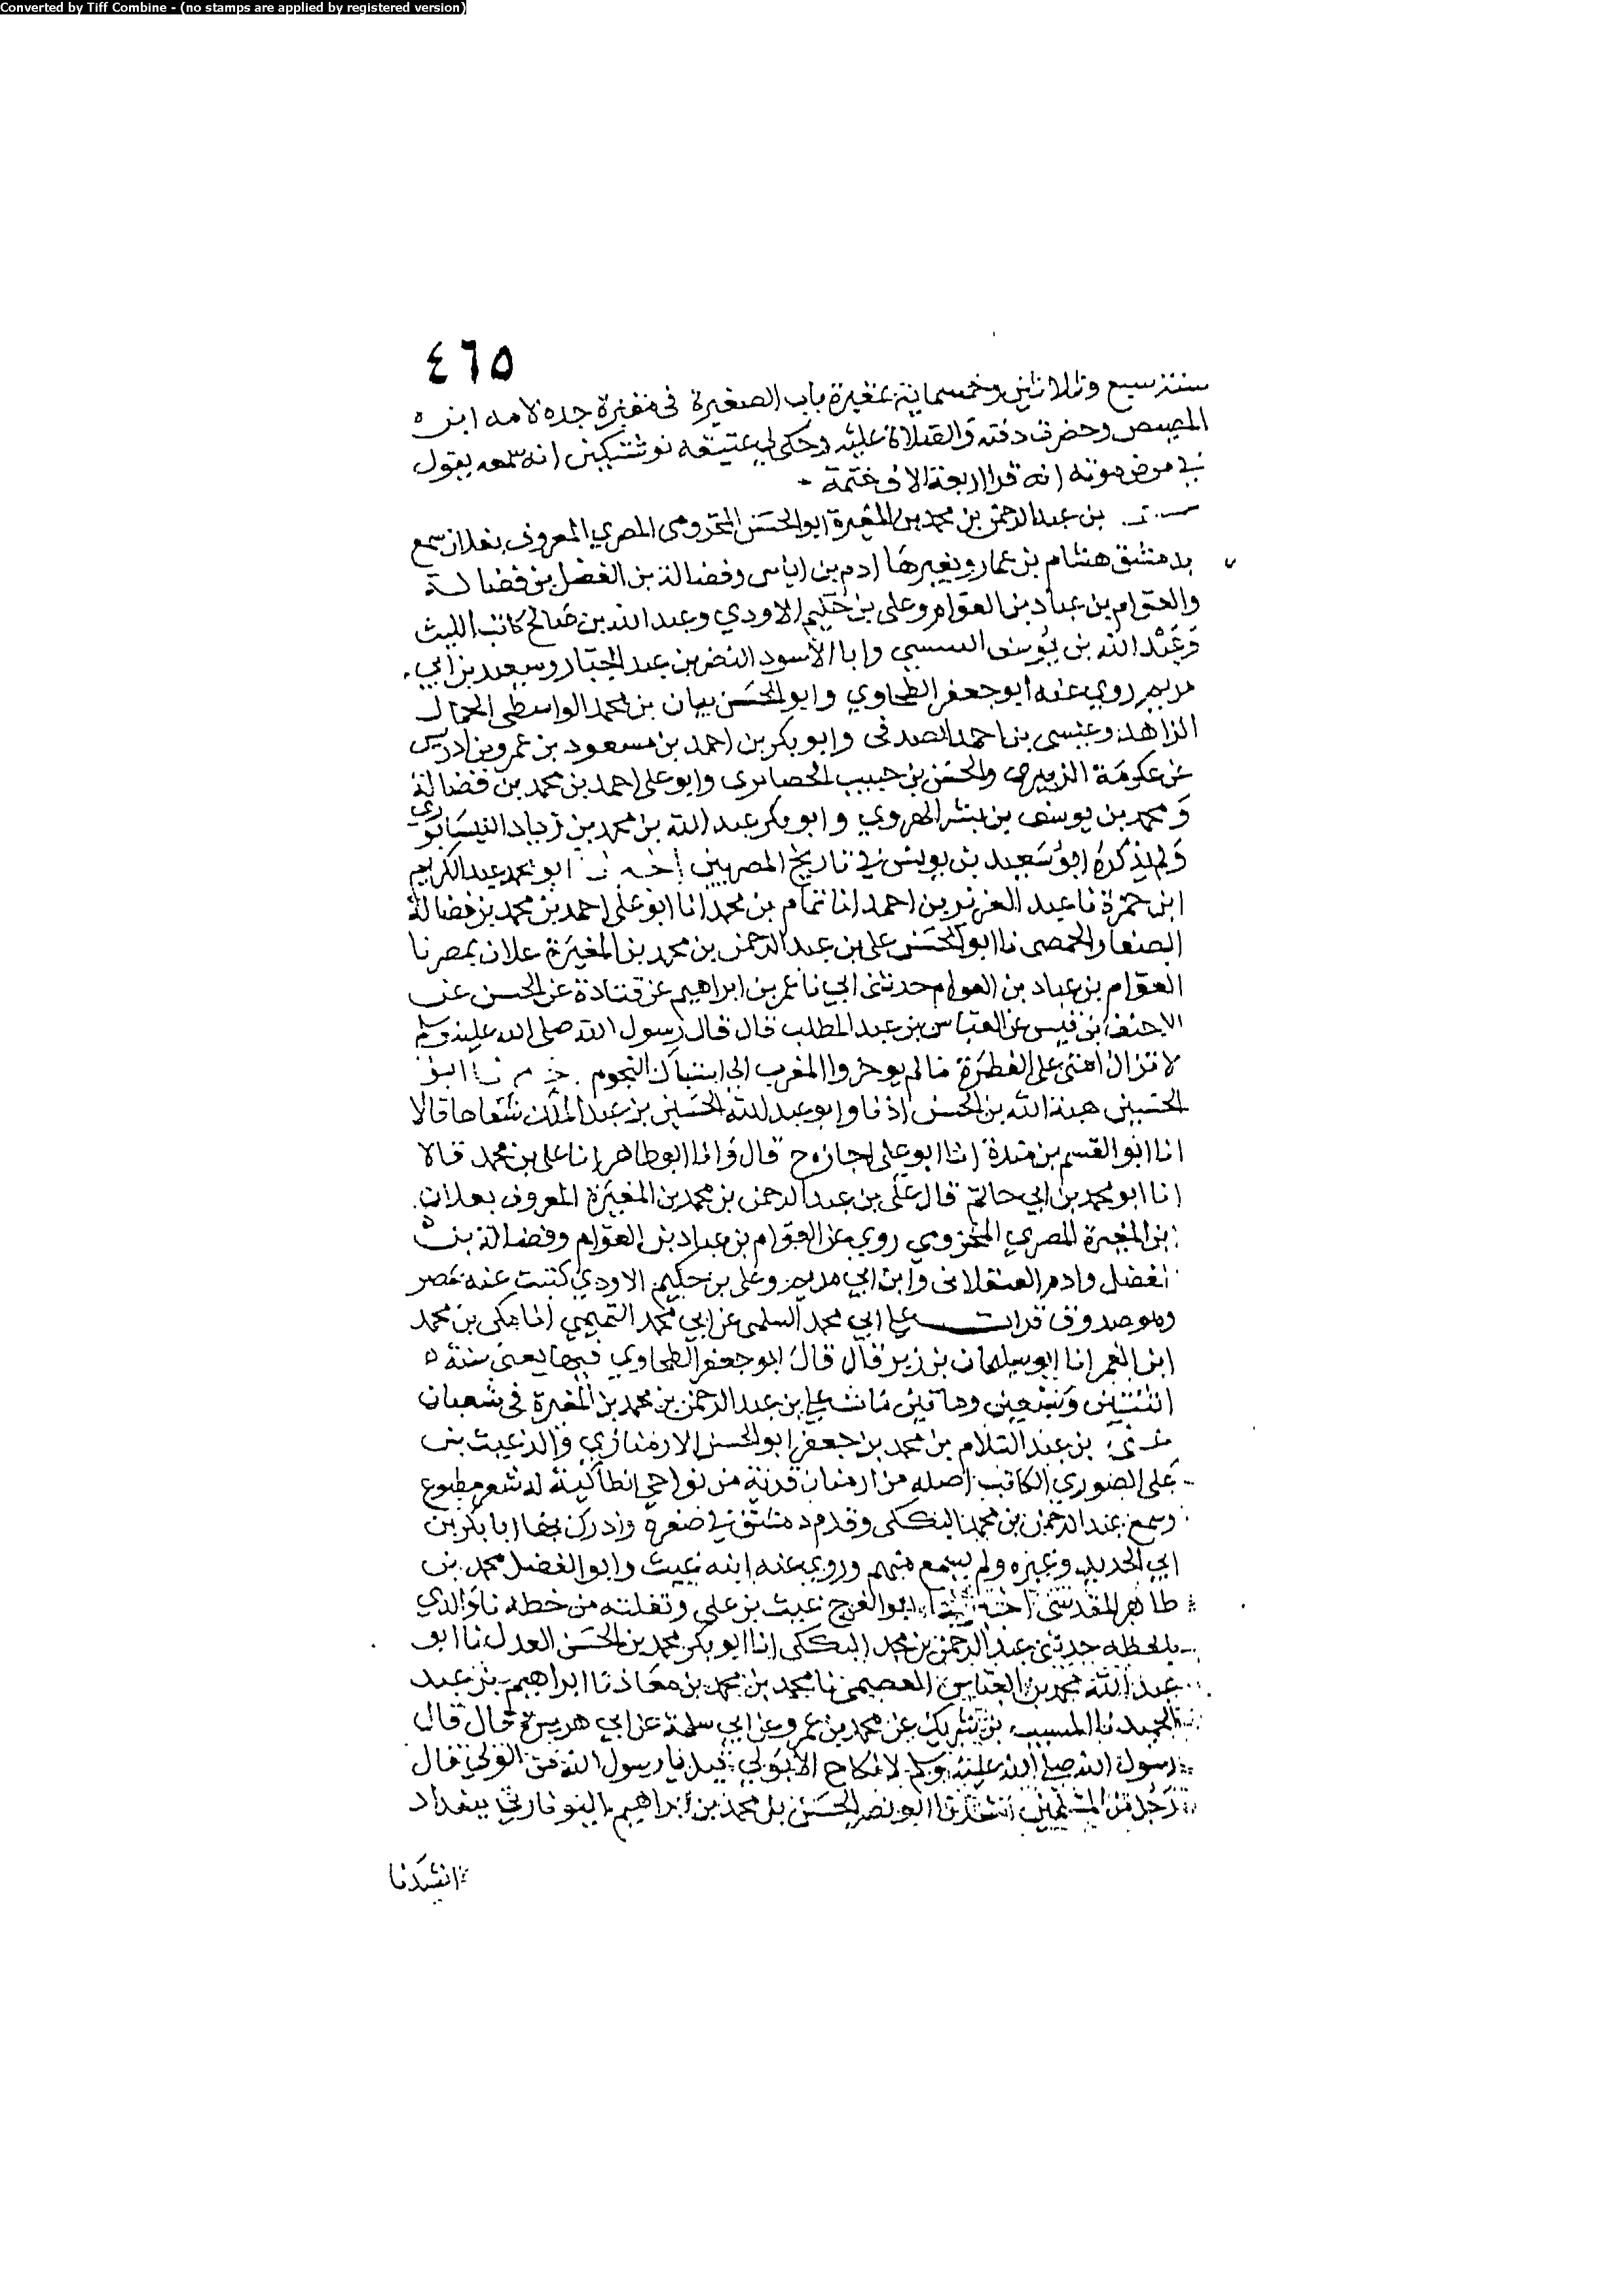 Converted by Tiff Combine - (no stamps are applied by registered version)
٤٦٥
سنة سبع وثلاثين وخمسماية بمقبرة باب الصغيرة في مقبرة جده لامه ابن
المصيص وحضرت دفنه والصلاة عليه وحكى لي عتيقه نوشتكين انه سمعه يقول
في مرض موته انه قرا اربعة الاف ختمة
بن عبد الرحمن بن محمد بن المغيرة ابو الحسن المخزومي المصري المعروف بعلان سمع
بدمشق هشام بن عمار وبغيرها ادم بن اياس وفضالة بن الفضل بن فضالة
والعوام بن عباد بن العوام وعلي بن حكيم الاودي وعبد الله بن صالح كاتب الليث
وعبد الله بن يوسف وابا الأسود النضر بن عبد الجبار وسعيد بن ابي
مريم روي عنه ابو جعفر الطحاوي وابو الحسن بيان بن محمد الواسطي الحمال
الزاهد وعيسى بن احمد الصدفى وابو بكر بن احمد بن مسعود بن عمرو بن ادريس
بن عكرمة الزبيري والحسن بن حبيب الحصايرى وابو على احمد بن محمد بن فضالة
و محمد بن يوسف بن بشر الهروي وابو بكر عبد الله بن محمد بن زياد النيسابوري
ولم يذكره ابو سعيد بن يونس في تاريخ المصريين ابو محمد عبد الكريم
ابن حمزة نا عبد العزيز بن احمد انا تمام بن محمد انا ابو على احمد بن محمد بن فضالة
الحمصى نا ابو الحسن على بن عبد الرحمن بن محمد بن المغيرة علان بمصر نا
العوام بن عباد بن العوام حدثنى ابي نا عمر بن ابراهيم عن قتادة عن الحسن عن
الاحنف بن قيس عن العباس بن عبد المطلب قال قال رسول الله صلى الله عليه وسلم
لا تزال امتى على الفطرة ما لم يوخروا المغرب الى اشتباك النجوم ابو
الحسين هبة الله بن الحسن اذنا وابو عبد الله الحسين بن عبد الملك شفاها قالا
انا ابو القسم بن مندة انا ابو على اجازه ح قال وانا ابو طاهر انا على بن محمد قالا
انا ابو محمد بن ابي حاتم قال على بن عبد الرحمن بن محمد بن المغيرة المعروف بعلان
بن المغيرة المصري المخزومي روي عن العوام بن عباد بن العوام وفضالة بن
الفضل وادم العسقلانى وابن ابي مريم وعلى بن حكيم الاودي كتبت عنه بمصر
وهو صدوق قرات على ابي محمد السلمى عن ابي محمد التميمي انا مكى بن محمد
ابن الغمر انا ابو سليمان بن زبر قال قال ابو جعفر الطحاوي فيها يعنى سنة
اثنتين وسبعين وماتين مات على بن عبد الرحمن بن محمد بن المغيرة في شعبان
بن عبد السلام بن محمد بن جعفر ابو الحسن الارمنازي والد غيث بن
على الصوري الكاتب اصله من ارمناز قرية من نواحي انطاكية له شعر مطبوع
وسمع عبد الرحمن بن محمد التككى وقدم دمشق في صغره وادرك بها ابا بكر بن
ابي الحديد وغيره ولم يسمع منهم وروي عنه ابنه غيث وابو الفضل محمد بن
طاهر المقدسى ابو الفرج غيث بن على ونقلته من خطه نا والدي
بلفظه حدثنى عبد الرحمن بن محمد التككى انا ابو بكر محمد بن الحسن العدل نا ابو
عبد الله محمد بن العباس العصيمى نا محمد بن محمد بن معاذ نا ابراهيم بن عبد
الحميد نا المسيب بن شريك عن محمد بن عمرو عن ابي سلمة عن ابي هريرة قال قال
رسول الله صلى الله عليه وسلم لا نكاح الا بولي قيل يا رسول الله من الولي قال
رجل من المسلمين انشدنا ابو نصر الحسن بن محمد بن ابراهيم ببغداد
انشدنا